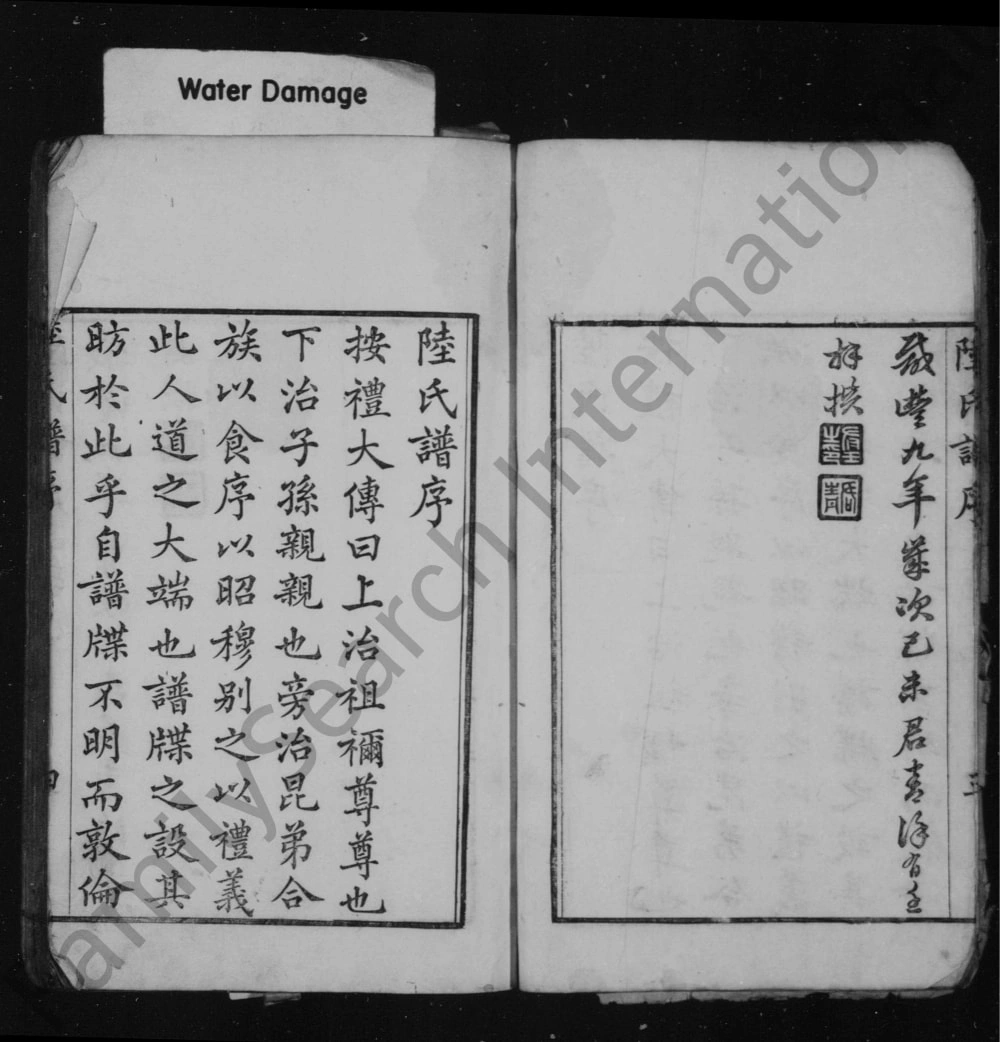 Water Damage
陸氏譜序
三
咸豐九年歲次己未君青徐有壬
拜撰
君青
陸氏譜序
按禮大傳曰上治祖禰尊尊也
下治子孫親親也旁治昆弟合
族以食序以昭穆別之以禮義
此人道之大端也譜牒之設其
昉於此乎自譜牒不明而敦倫
陸氏譜序
四
FamilySearch International